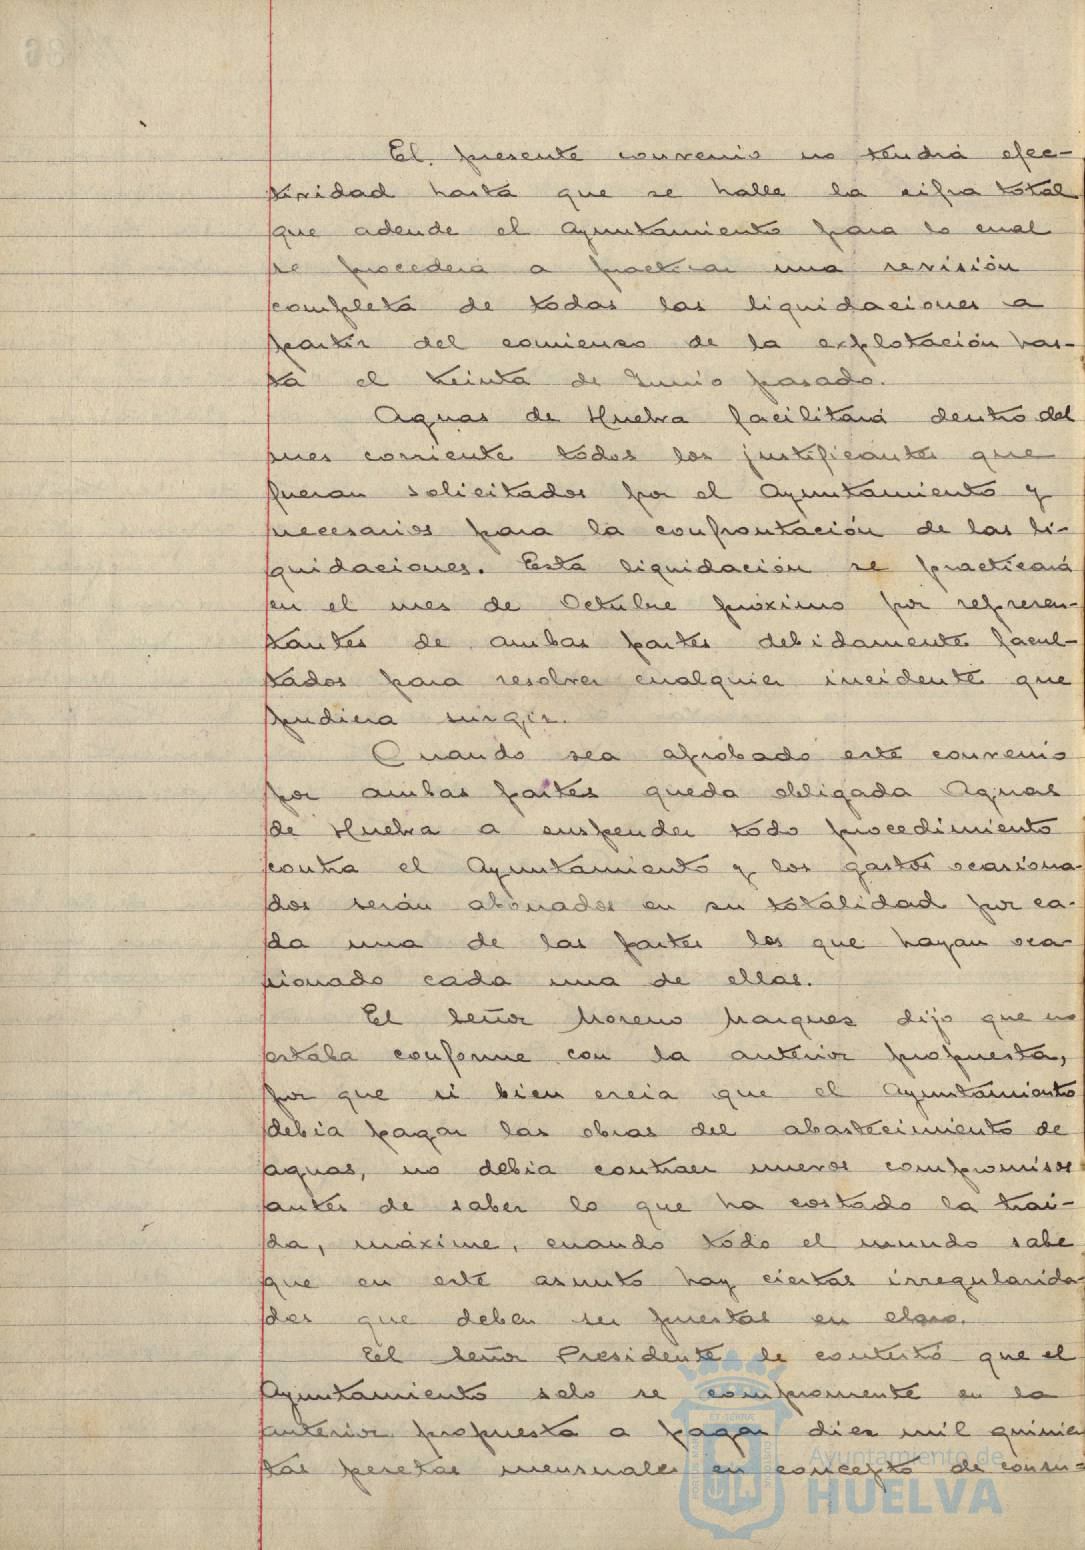 El presente convenio no tendrá efec-
tividad hasta que se halle la cifra total
que adeude el Ayuntamiento para lo cual
se procederá a practicar una revisión
completa de todas las liquidaciones a
partir del comienzo de la explotación has-
ta el treinta de Junio pasado.
Aguas de Huelva facilitará dentro del
mes corriente todos los justificantes que
fueran solicitados por el Ayuntamiento y
necesarios para la confrontación de las li-
quidaciones. Esta liquidación se practicará
en el mes de Octubre próximo por represen-
tantes de ambas partes debidamente facul-
tados para resolver cualquier incidente que
pudiera surgir.
Cuando sea aprobado este convenio
por ambas partes queda obligada Aguas
de Huelva a suspender todo procedimiento
contra el Ayuntamiento y los gastos ocasiona-
dos serán abonados en su totalidad por ca-
da una de las partes los que hayan oca-
sionado cada una de ellas.
El Señor Moreno Marquez dijo que no
estaba conforme con la anterior propuesta,
por que si bien creia que el Ayuntamiento
debia pagar las obras del abastecimiento de
aguas, no debia contraer nuevos compromisos
antes de saber lo que ha costado la traí-
da, máxime, cuando todo el mundo sabe
que en este asunto hay ciertas irregularida-
des que deben ser puestas en claro.
El Señor Presidente le contestó que el
Ayuntamiento solo se compromente en la
anterior propuesta a pagar diez mil quinien
tas pesetas mensuales en concepto de consu-
Ayuntamiento de
HUELVA